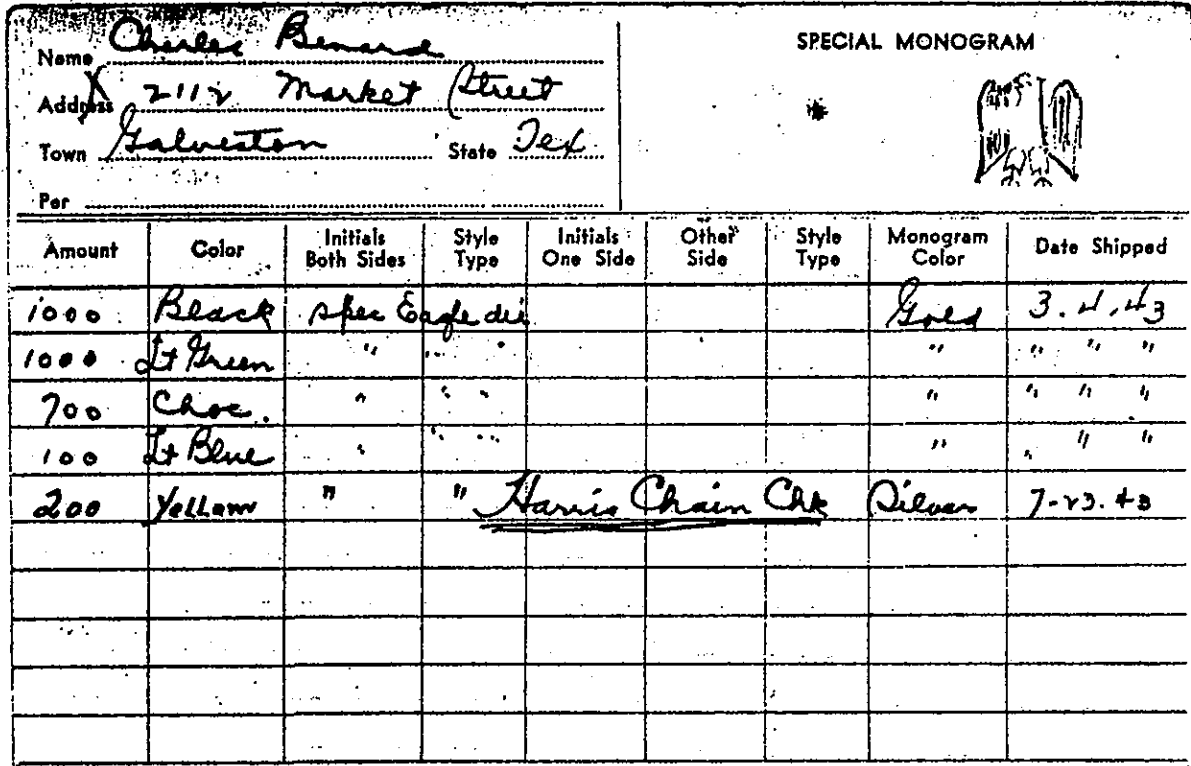 SPECIAL MONOGRAM
Name Charles Benard
Address 2112 Market Street
Town Galveston State Tex
Per
Amount Color Initials Both Sides Style Type Initials One Side Other Side Style Type Monogram Color Date Shipped
1000 Black spec Eagle die Gold 3.4.43
1000 Lt Green " " " " " " "
700 Choc. " " " " " " "
100 Lt Blue " " " " " " "
200 Yellow " " Harris Chain Chk Silver 7-23.43